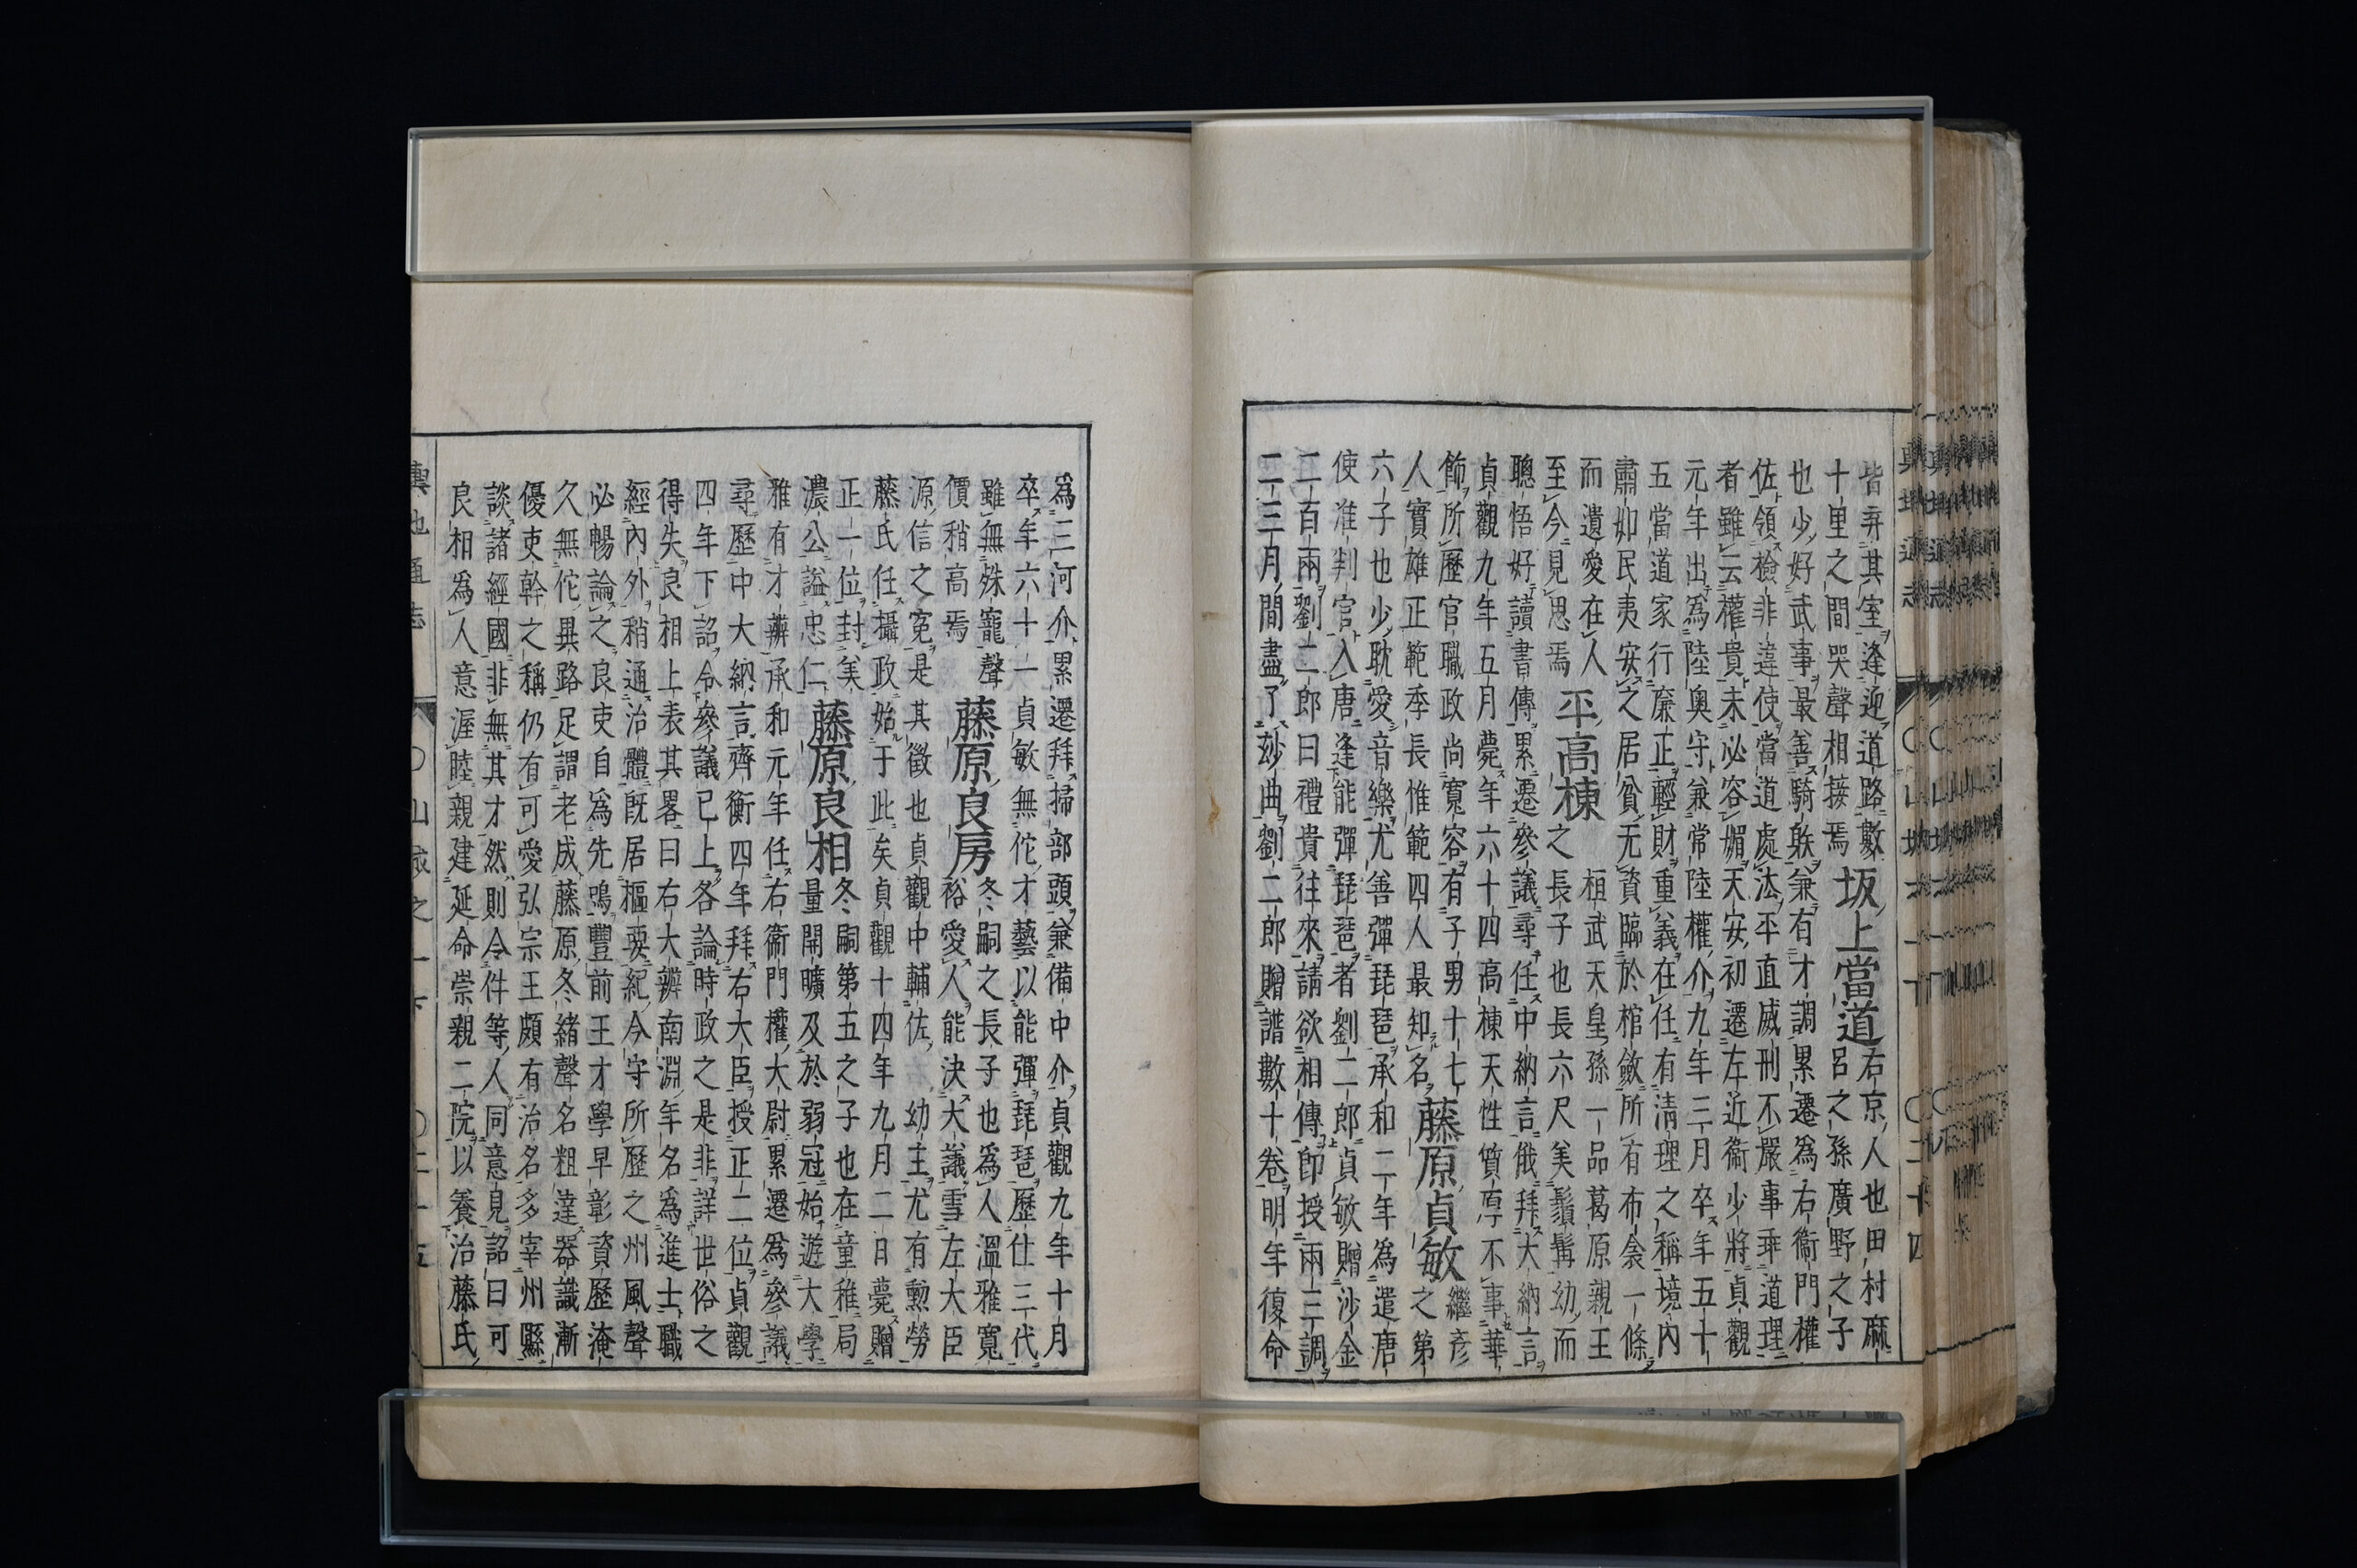 皆弃其室逢迎道路數
十里之間哭聲相接焉
坂上當道
右京人也田村麻
呂之孫廣野之子
也少好武事最善騎躲兼有才調累遷爲右衞門權
佐領撿非違使當道處法平直威刑不嚴事乖道理
者雖云權貴未必容媚天安初遷左近衞少將貞觀
元年出爲陸奧守兼常陸權介九年三月卒年五十
五當道家行廉正輕財重義在任有清理之稱境內
肅如民夷安之居貧无資臨於棺斂所有布衾一條
而遺愛在人
至今見思焉
平高棟
桓武天皇孫一品葛原親王
之長子也長六尺美鬚髯幼而
聰悟好讀書傳累遷參議尋任中納言俄拜大納言
貞觀九年五月薨年六十四高棟天性質厚不事華
飾所歷官職政尚寬容有子男十七
人實雄正範季長惟範四人最知名
藤原貞敏
繼彥
之第
六子也少耽愛音樂尤善彈琵琶承和二年爲遣唐
使准判官入唐逢能彈琵琶者劉二郎貞敏贈沙金
二百兩劉二郎曰禮貴往來請欲相傳卽授兩三調
二三月間盡了玅曲劉二郎贈譜數十卷明年復命
爲三河介累遷拜掃部頭兼備中介貞觀九年十月
卒年六十一貞敏無佗才藝以能彈琵琶歷仕三代
雖無殊寵聲
價稍高焉
藤原良房
冬嗣之長子也爲人溫雅寬
裕愛人能決大議雪左大臣
源信之寃是其徵也貞觀中輔佐幼主尤有勳勞
藤氏任攝政始于此矣貞觀十四年九月二日薨贈
正一位封美
濃公謚忠仁
藤原良相
冬嗣第五之子也在童稚局
量開曠及於弱冠始遊大學
雅有才辨承和元年任右衞門權大尉累遷爲參議
尋歷中大納言齊衡四年拜右大臣授正二位貞觀
四年下詔令參議已上各論時政之是非詳世俗之
得失良相上表其畧曰右大辨南淵年名爲進士職
經內外稍通治體旣居樞要紀今守所歷之州風聲
必暢論之良吏自爲先鳴豐前王才學早彰資歷淹
久無佗異路足謂老成藤原冬緒聲名粗達器識漸
優吏幹之稱仍有可愛弘宗王頗有治名多宰州縣
談諸經國非無其才然則令件等人同意見詔曰可
良相爲人意渥睦親建延命崇親二院以養治藤氏